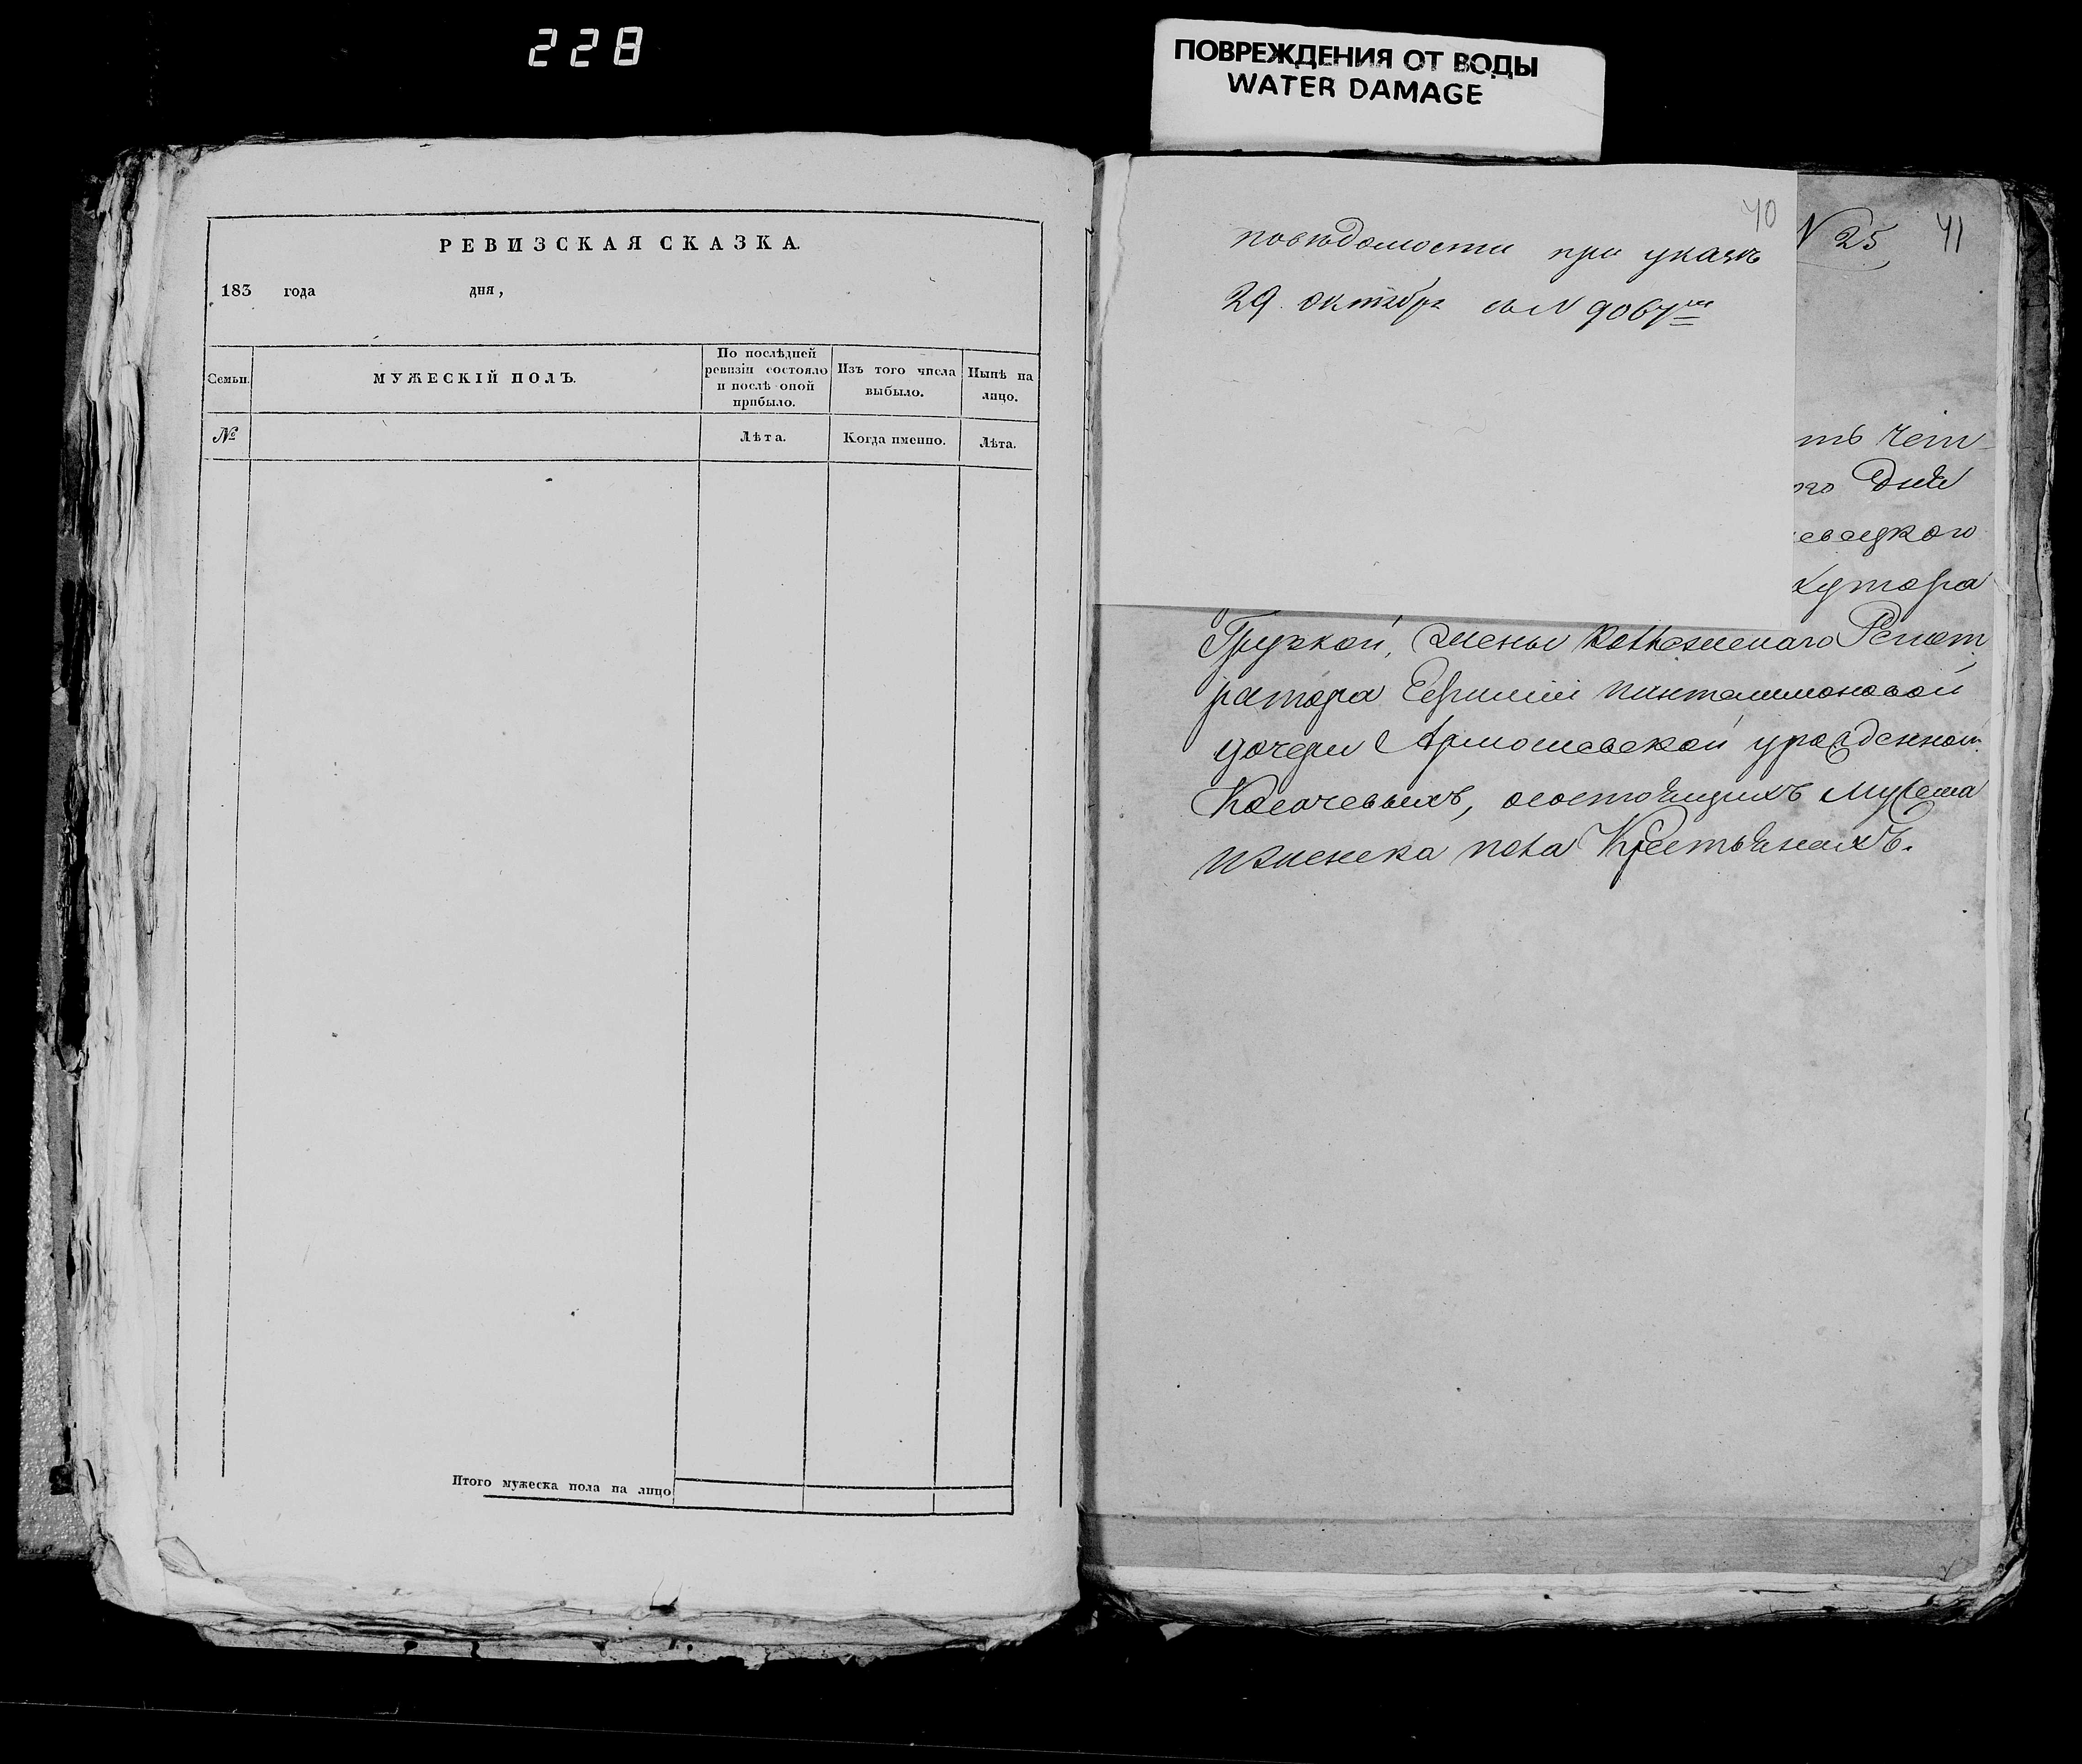 228
ПОВРЕЖДЕНИЯ ОТ ВОДЫ
WATER DAMAGE
РЕВИЗСКАЯ СКАЗКА.
183 года дня,
Семьи.
МУЖЕСКІЙ ПОЛЪ.
По послѣдней
ревизіи состояло
и послѣ оной
прибыло.
Изъ того числа
выбыло.
Нынѣ на
лицо.
№
Лѣта.
Когда именно.
Лѣта.
Итого мужеска пола на лицо
40
повѣдомости при указѣ
29 октября за N 9067
N 25
41
ть чет
ого дня
евецкого
хутора
Грузкой, жены Колежского Регист
ратора Ефимии Пантелимоновой
дочери урожденной
Косачевыхъ, состоящихъ мужеска
и женска пола Крестьянахъ.